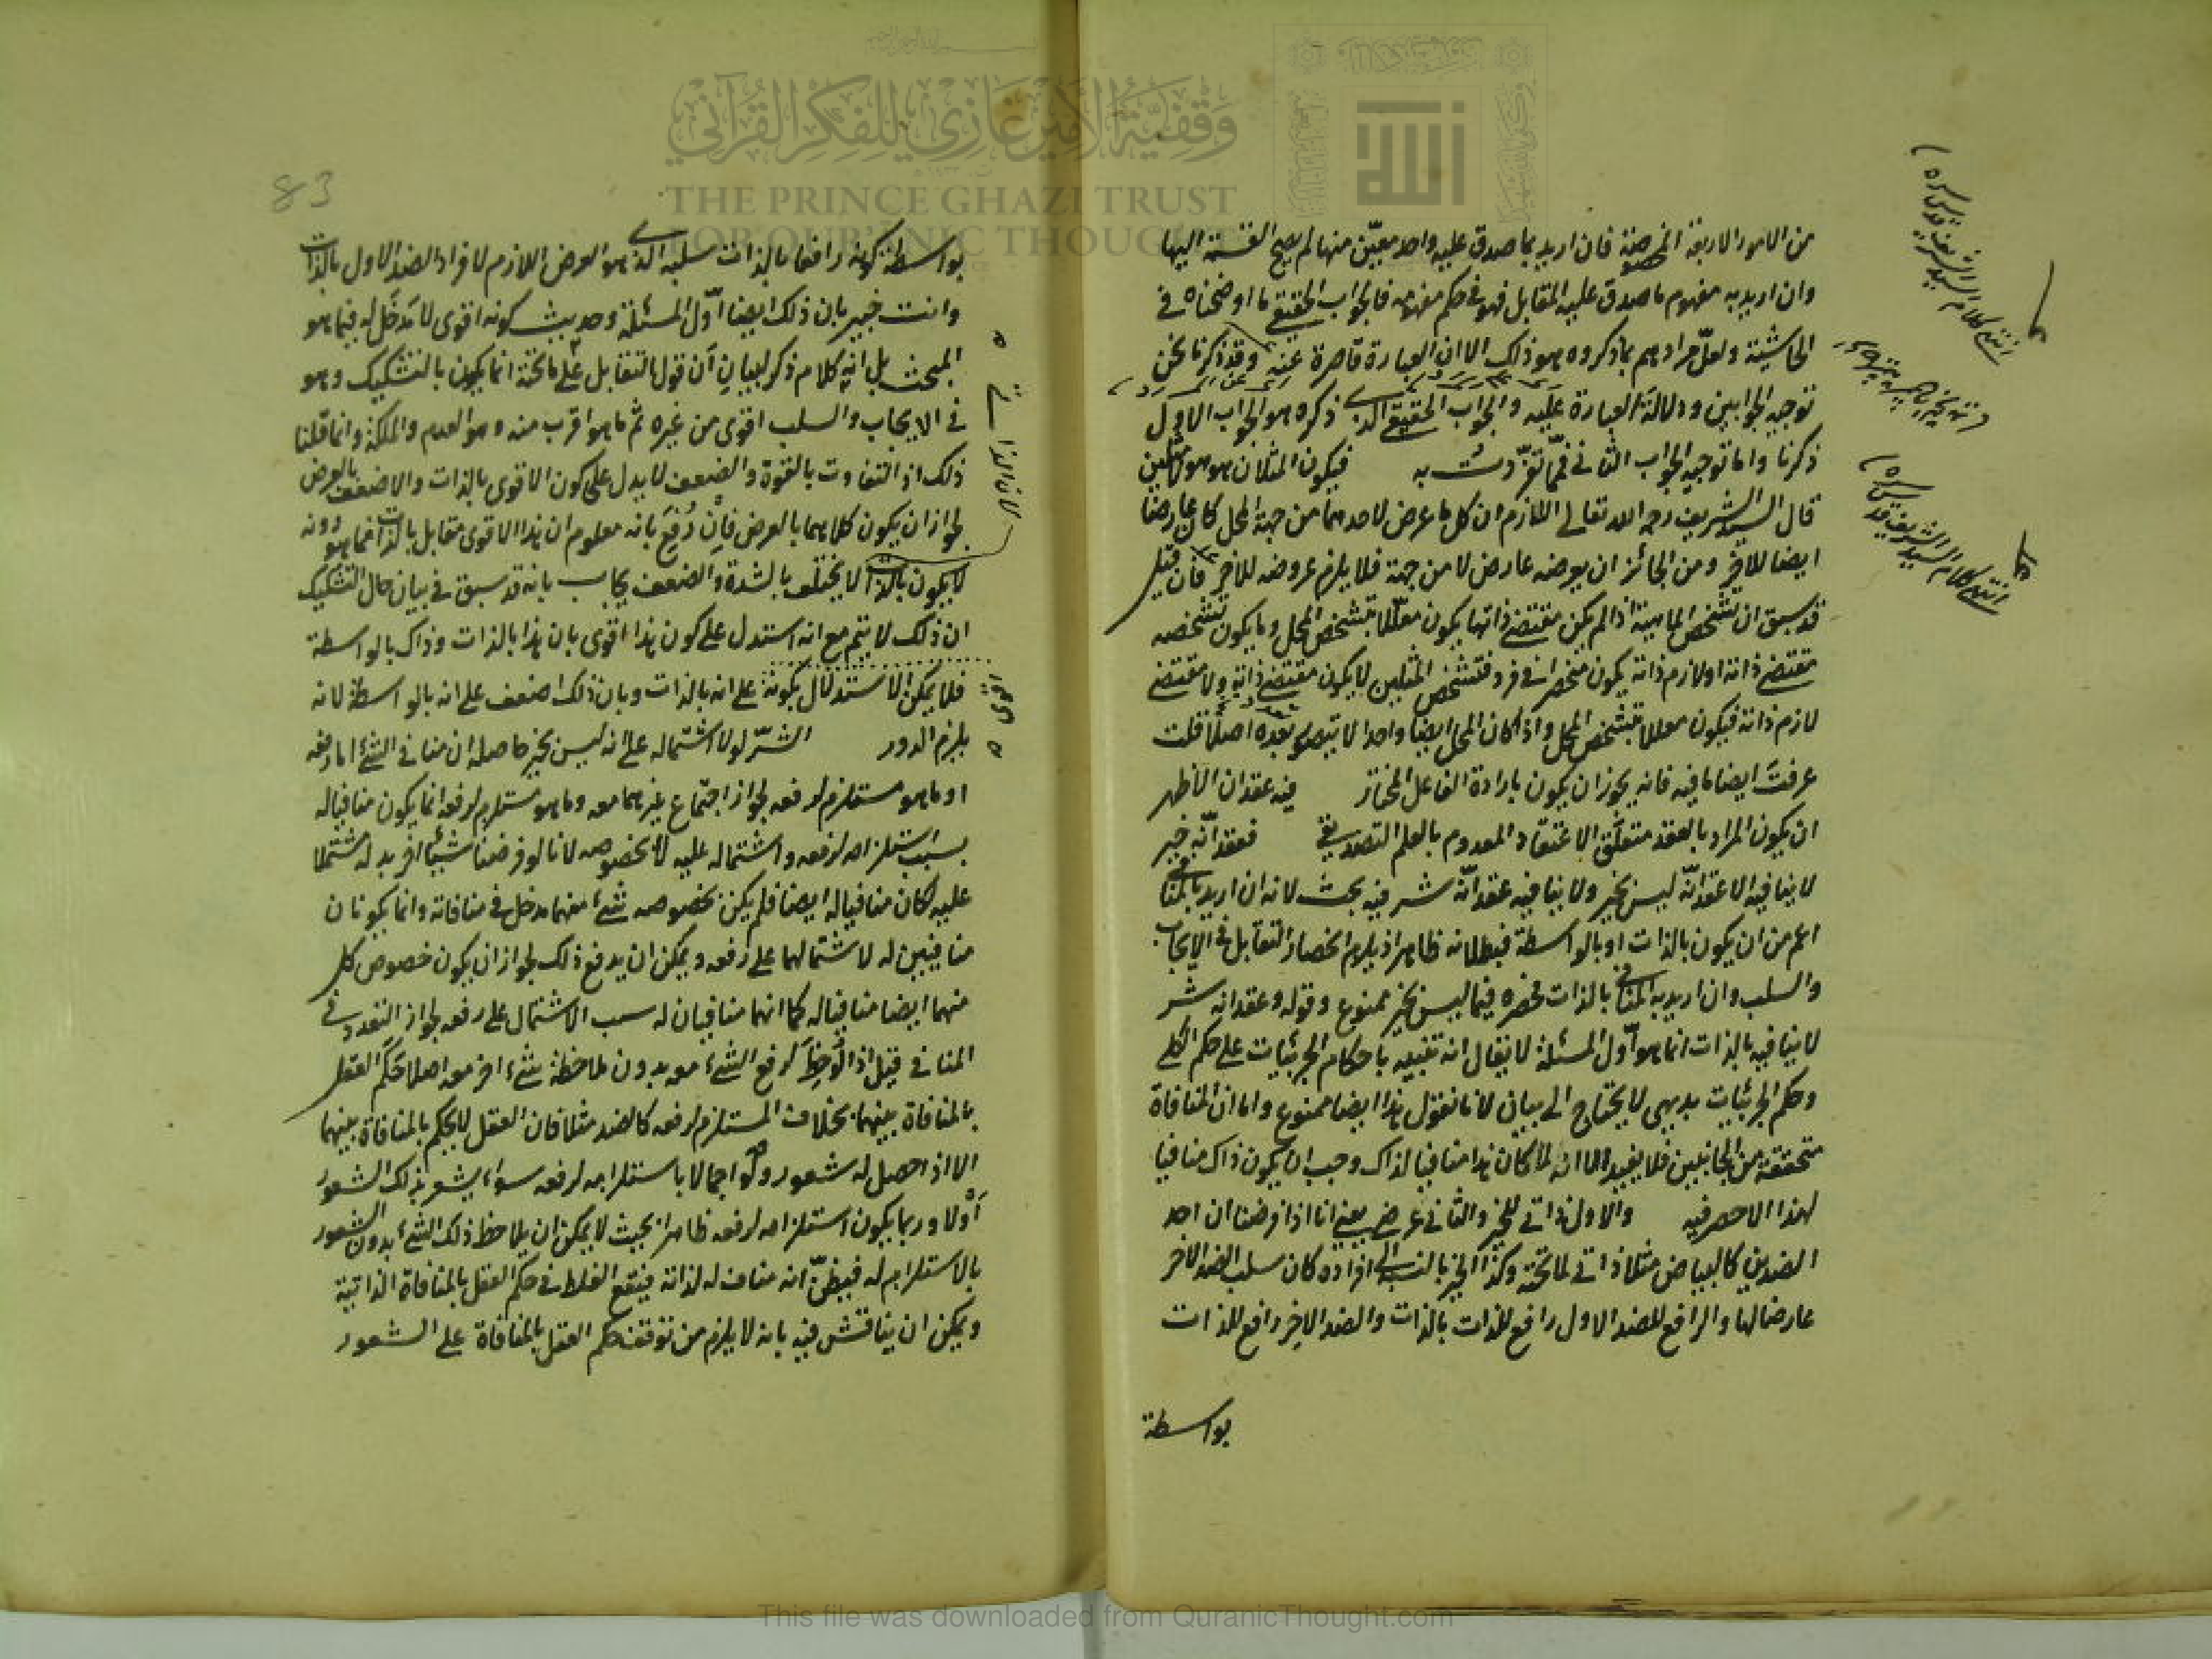 من الامور الاربعة المخصوصة فان اريد بما صدق عليه واحد معيّن منها لم يصح القسمة اليها
وان اريد به مفهوم ما صدق عليه المقابل فهو في حكم مفهومه فالجواب الحقيقي ما اوضحناه في
الحاشية ولعلّ مرادهم بما ذكروه هو ذلك الا ان العبارة قاصرة عنه وقد ذكرنا نحن
توجيه الجوابين ودلالة العبارة عليه والجواب الحقيقي الذي ذكره هو الجواب الاول
ذكرنا واما توجيه الجواب الثاني فمما تفرّدت به فيكون المثلان هو هو لمثلين
قال السيد الشريف رحمه الله تعالى اللازم ان كل ما عرض لاحدهما من جهة المحل كان عارضا
ايضا للآخر ومن الجائز ان يعرضه عارض لا من جهة فلا يلزم عروضه للآخر فان قيل
قد سبق ان تشخص الماهية اذا لم يكن مقتضى ذاتها يكون معللا بتشخص المحل وما يكون تشخصه
مقتضى ذاته او لازم ذاته يكون منحصرا في فرد فتشخص المثلين لا يكون مقتضى ذاته ولا مقتضى
لازم ذاته فيكون معللا بتشخص المحل واذا كان المحل ايضا واحدا لا يتصور تعدده اصلا قلت
عرفت ايضا ما فيه فانه يجوز ان يكون بارادة الفاعل المختار فيه عقدان الاظهر
ان يكون المراد بالعقد متعلق الاعتقاد المعدوم بالعلم التصديقي فعقد انّه خير
لا ينافيه الا عقد انّه ليس بخير ولا ينافيه عقد انّه شر فيه بحث لانه ان اريد بالمنافي
اعم من ان يكون بالذات او بالواسطة فبطلانه ظاهر اذ يلزم انحصار التقابل في الايجاب
والسلب وان اريد به المنافي بالذات فحصره فيما ليس بخير ممنوع وقوله وعقد انه شر
لا ينافيه بالذات انما هو اول المسئلة لا يقال انه تنبيه باحكام الجزئيات على حكم الكلي
وحكم الجزئيات بديهي لا يحتاج الى بيان لانا نقول هذا ايضا ممنوع واما ان المنافاة
متحققة من الجانبين فلا يفيد الا انه لما كان هذا منافيا لذاك وجب ان يكون ذاك منافيا
لهذا لا حصر فيه والاول ذاتي للخير والثاني عرضي يعني انا اذا فرضنا ان احد
الضدين كالبياض مثلا ذاتي لما تحته وكذا الخير بالنسبة الى افراده كان سلب الضد الآخر
عارضا لها والرافع للضد الاول رافع للذات بالذات والضد الآخر رافع للذات
بواسطة
انتهى كلام السيد الشريف قدس سره
انتهى كلام السيد الشريف قدس سره
83
بواسطة كونه رافعا بالذات سلبه الذي هو العرض اللازم لافراد الضد الاول بالذات
وانت خبير بان ذلك ايضا اوّل المسئلة وحديث كونه اقوى لا مدخل له فيما هو
المبحث بل انه كلام ذكر لبيان ان قول التقابل على ما تحته انما يكون بالتشكيك وهو
في الايجاب والسلب اقوى من غيره ثم ما هو اقرب منه وهو العدم والملكة وانما قلنا
ذلك اذ التفاوت بالقوة والضعف لا يدل على كون الاقوى بالذات والاضعف بالعرض
لجواز ان يكون كلاهما بالعرض فان دُفِعَ بانه معلوم ان هذا الاقوى مقابل بالذات فما هو دونه
لا يكون بالذات لا يختلف بالشدة والضعف يجاب بانه قد سبق في بيان حال التشكيك
ان ذلك لا يتم مع انه استدل على كون هذا اقوى بان هذا بالذات وذاك بالواسطة
فلا يمكن الاستدلال بكونه على انه بالذات وبان ذلك اضعف على انه بالواسطة لانه
يلزم الدور الشرّ لولا اشتماله على انه ليس بخير حاصله ان منافي الشئ اما رفعه
او ما هو مستلزم لرفعه لجواز اجتماع غيرهما معه وما هو مستلزم لرفعه انما يكون منافيا له
بسبب استلزامه لرفعه واشتماله عليه لا بخصوصه لانا لو فرضنا شيئا آخر بدله مشتملا
عليه لكان منافيا له ايضا فلم يكن بخصوصه شئ منهما مدخل في منافاته وانما يكونان
منافيين له لاشتمالهما على رفعه ويمكن ان يدفع ذلك لجواز ان يكون خصوص كل
منهما ايضا منافيا له كما انهما منافيان له سبب الاشتمال على رفعه لجواز التعدد في
المنافي قيل اذا لُوحِظَ رفع الشئ معه بدون ملاحظة شئ آخر معه اصلا حَكَم العقل
بالمنافاة بينهما بخلاف المستلزم لرفعه كالضد مثلا فان العقل لا يحكم بالمنافاة بينهما
الا اذا حصل له شعور ولو اجمالا باستلزامه لرفعه سواء شعر بذلك الشعور
أوْلا وربما يكون استلزامه لرفعه ظاهرا بحيث لا يمكن ان يلاحظ ذلك الشئ بدون الشعور
بالاستلزام له فيظنّ انه مناف له لذاته فيقع الغلط في حكم العقل بالمنافاة الذاتية
ويمكن ان يناقش فيه بانه لا يلزم من توقف حكم العقل بالمنافاة على الشعور
وقفية الأمير غازي للفكر القرآني
THE PRINCE GHAZI TRUST
FOR QUR'ANIC THOUGHT
This file was downloaded from QuranicThought.com